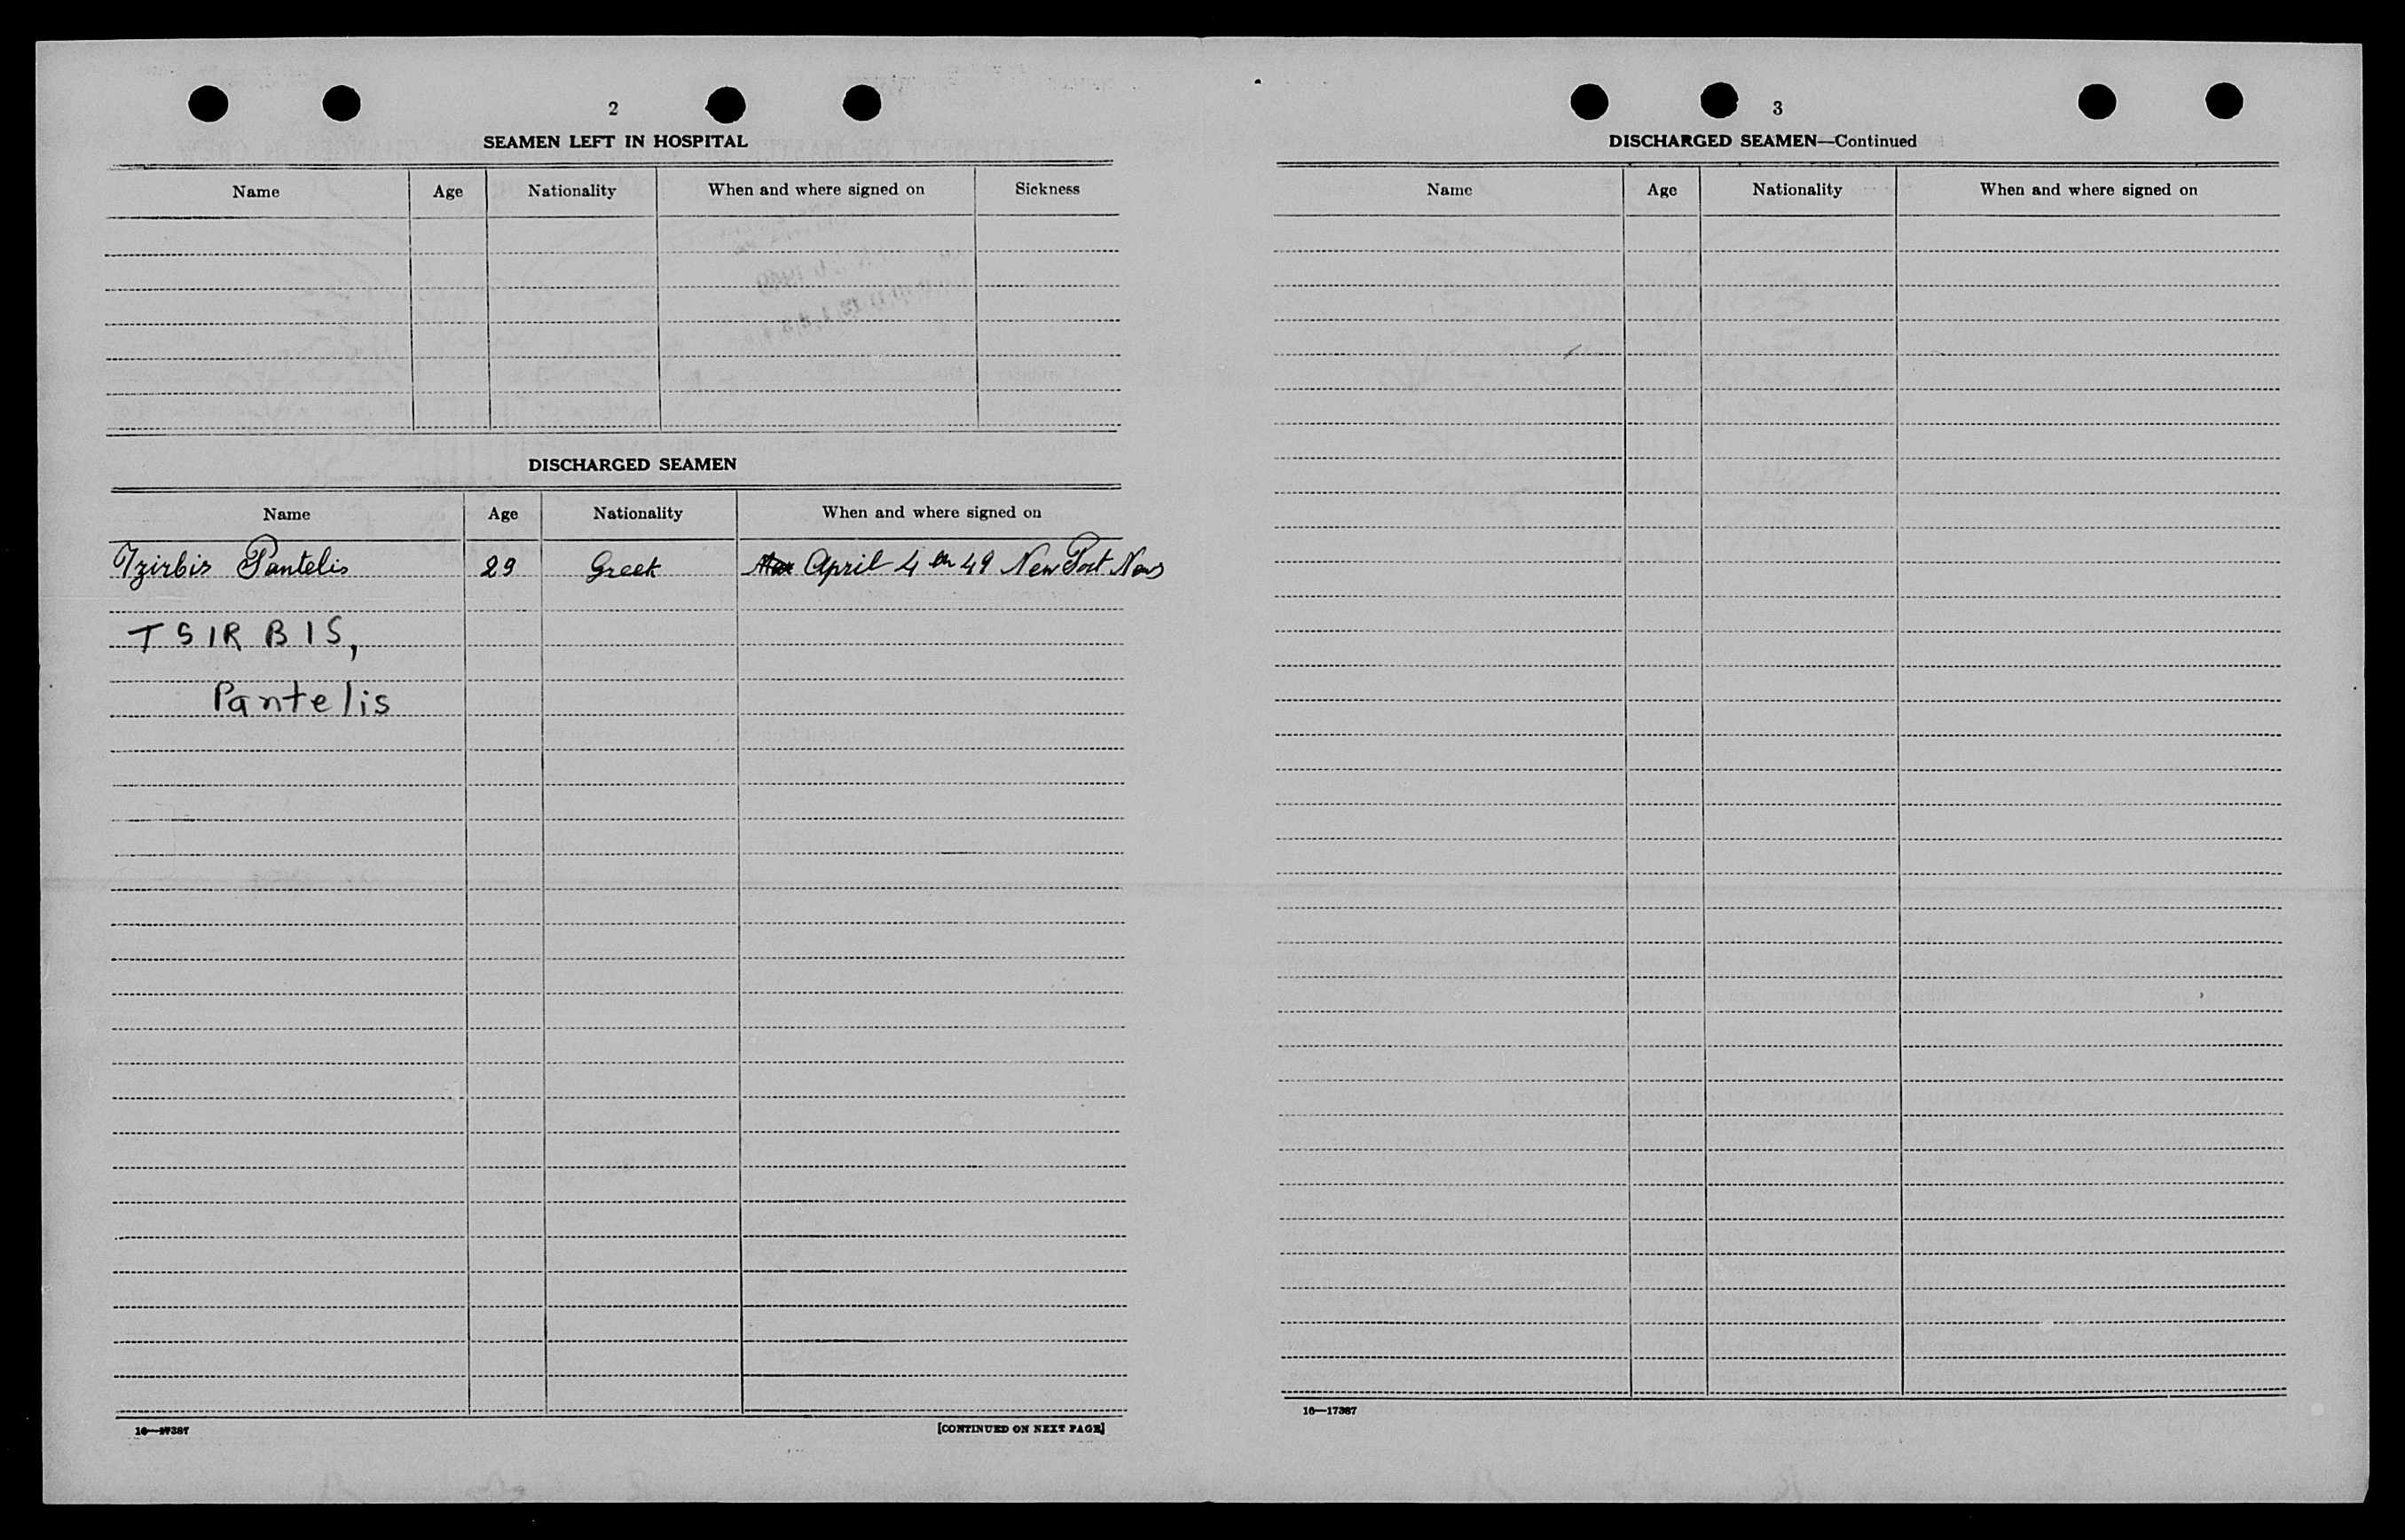 2
SEAMEN LEFT IN HOSPITAL
Name Age Nationality When and where signed on Sickness
DISCHARGED SEAMEN
Name Age Nationality When and where signed on
Tzirbis Pantelis 29 Greek April 4 49 New Port News
TSIRBIS,
Pantelis
16—17387 [CONTINUED ON NEXT PAGE]
3
DISCHARGED SEAMEN—Continued
Name Age Nationality When and where signed on
16—17387